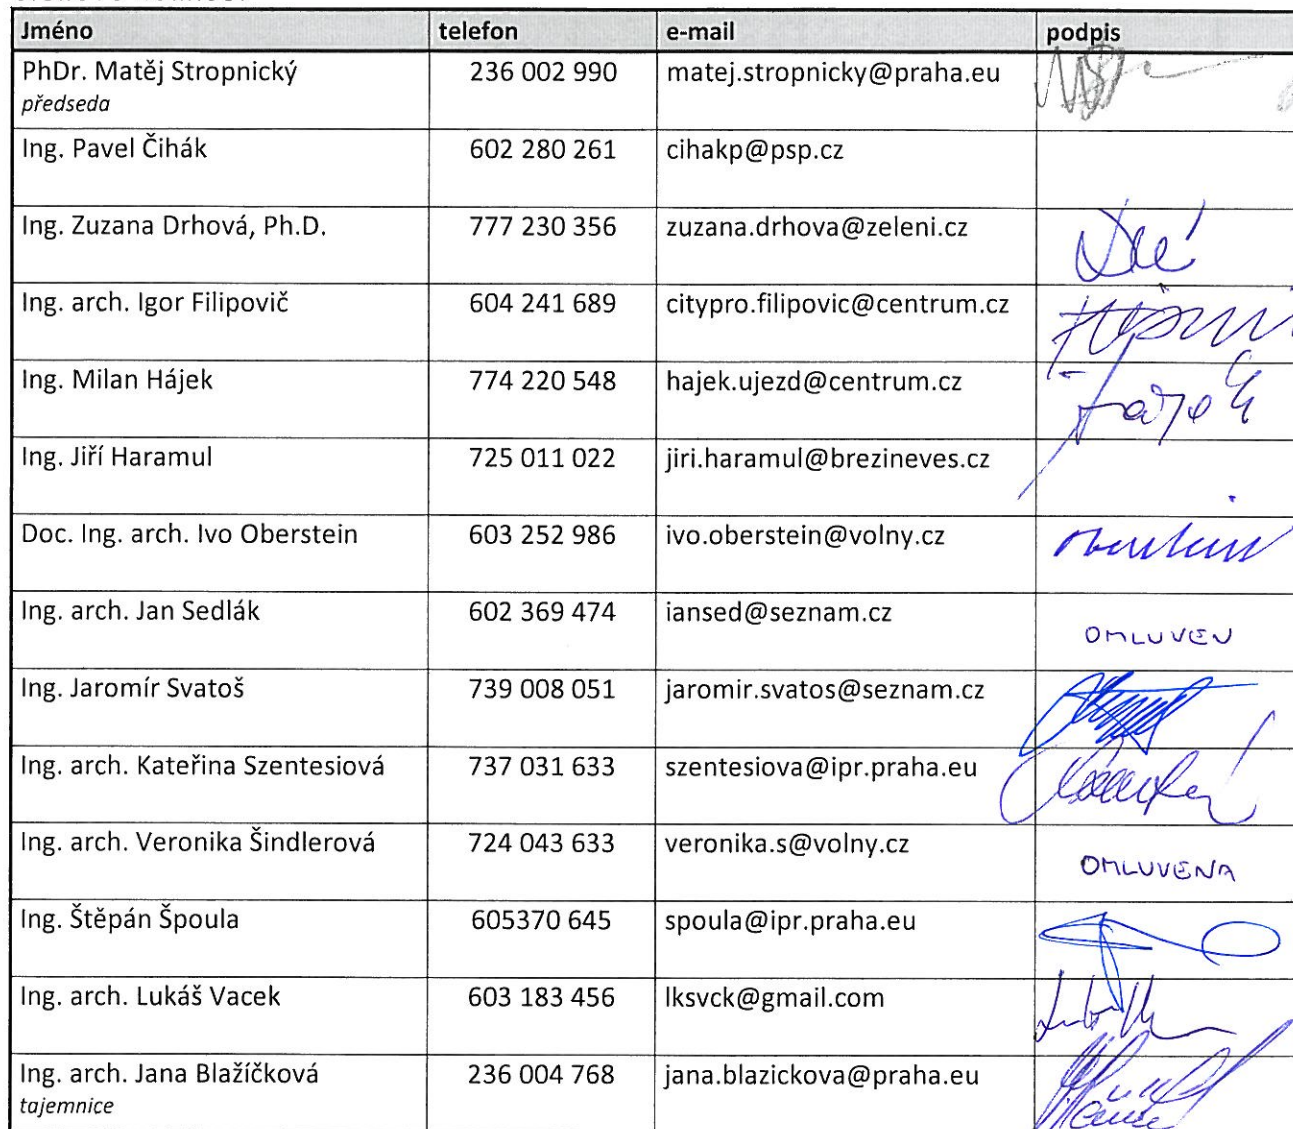 Jméno telefon e-mail podpis
PhDr. Matěj Stropnický 236 002 990 matej.stropnicky@praha.eu
předseda
Ing. Pavel Čihák 602 280 261 cihakp@psp.cz
Ing. Zuzana Drhová, Ph.D. 777 230 356 zuzana.drhova@zeleni.cz
Ing. arch. Igor Filipovič 604 241 689 citypro.filipovic@centrum.cz
Ing. Milan Hájek 774 220 548 hajek.ujezd@centrum.cz
Ing. Jiří Haramul 725 011 022 jiri.haramul@brezineves.cz
Doc. Ing. arch. Ivo Oberstein 603 252 986 ivo.oberstein@volny.cz
Ing. arch. Jan Sedlák 602 369 474 iansed@seznam.cz OMLUVEN
Ing. Jaromír Svatoš 739 008 051 jaromir.svatos@seznam.cz
Ing. arch. Kateřina Szentesiová 737 031 633 szentesiova@ipr.praha.eu
Ing. arch. Veronika Šindlerová 724 043 633 veronika.s@volny.cz OMLUVENA
Ing. Štěpán Špoula 605370 645 spoula@ipr.praha.eu
Ing. arch. Lukáš Vacek 603 183 456 lksvck@gmail.com
Ing. arch. Jana Blažíčková 236 004 768 jana.blazickova@praha.eu
tajemnice